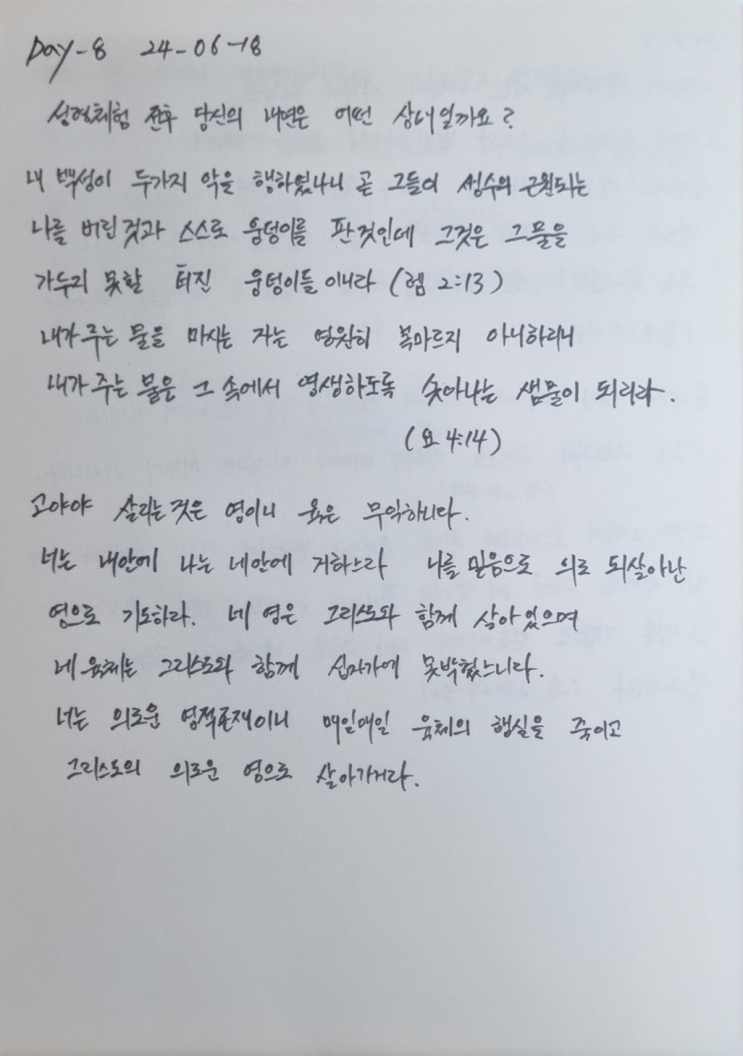 Day-8 24-06-18
성령체험 전후 당신의 내면은 어떤 상태일까요?
내 백성이 두가지 악을 행하였나니 곧 그들이 생수의 근원되는
나를 버린것과 스스로 웅덩이를 판것인데 그것은 그물을
가두지 못할 터진 웅덩이들이니라 (렘 2:13)
내가 주는 물을 마시는 자는 영원히 목마르지 아니하리니
내가 주는 물은 그 속에서 영생하도록 솟아나는 샘물이 되리라.
(요 4:14)
고야야 살리는것은 영이니 육은 무익하니라.
너는 내안에 나는 네안에 거하느라 나를 믿음으로 의로 되살아난
영으로 기도하라. 네 영은 그리스도와 함께 살아있으며
네 육체는 그리스도와 함께 십자가에 못박혔느니라.
너는 의로운 영적존재이니 매일매일 육체의 행실을 죽이고
그리스도의 의로운 영으로 살아가거라.